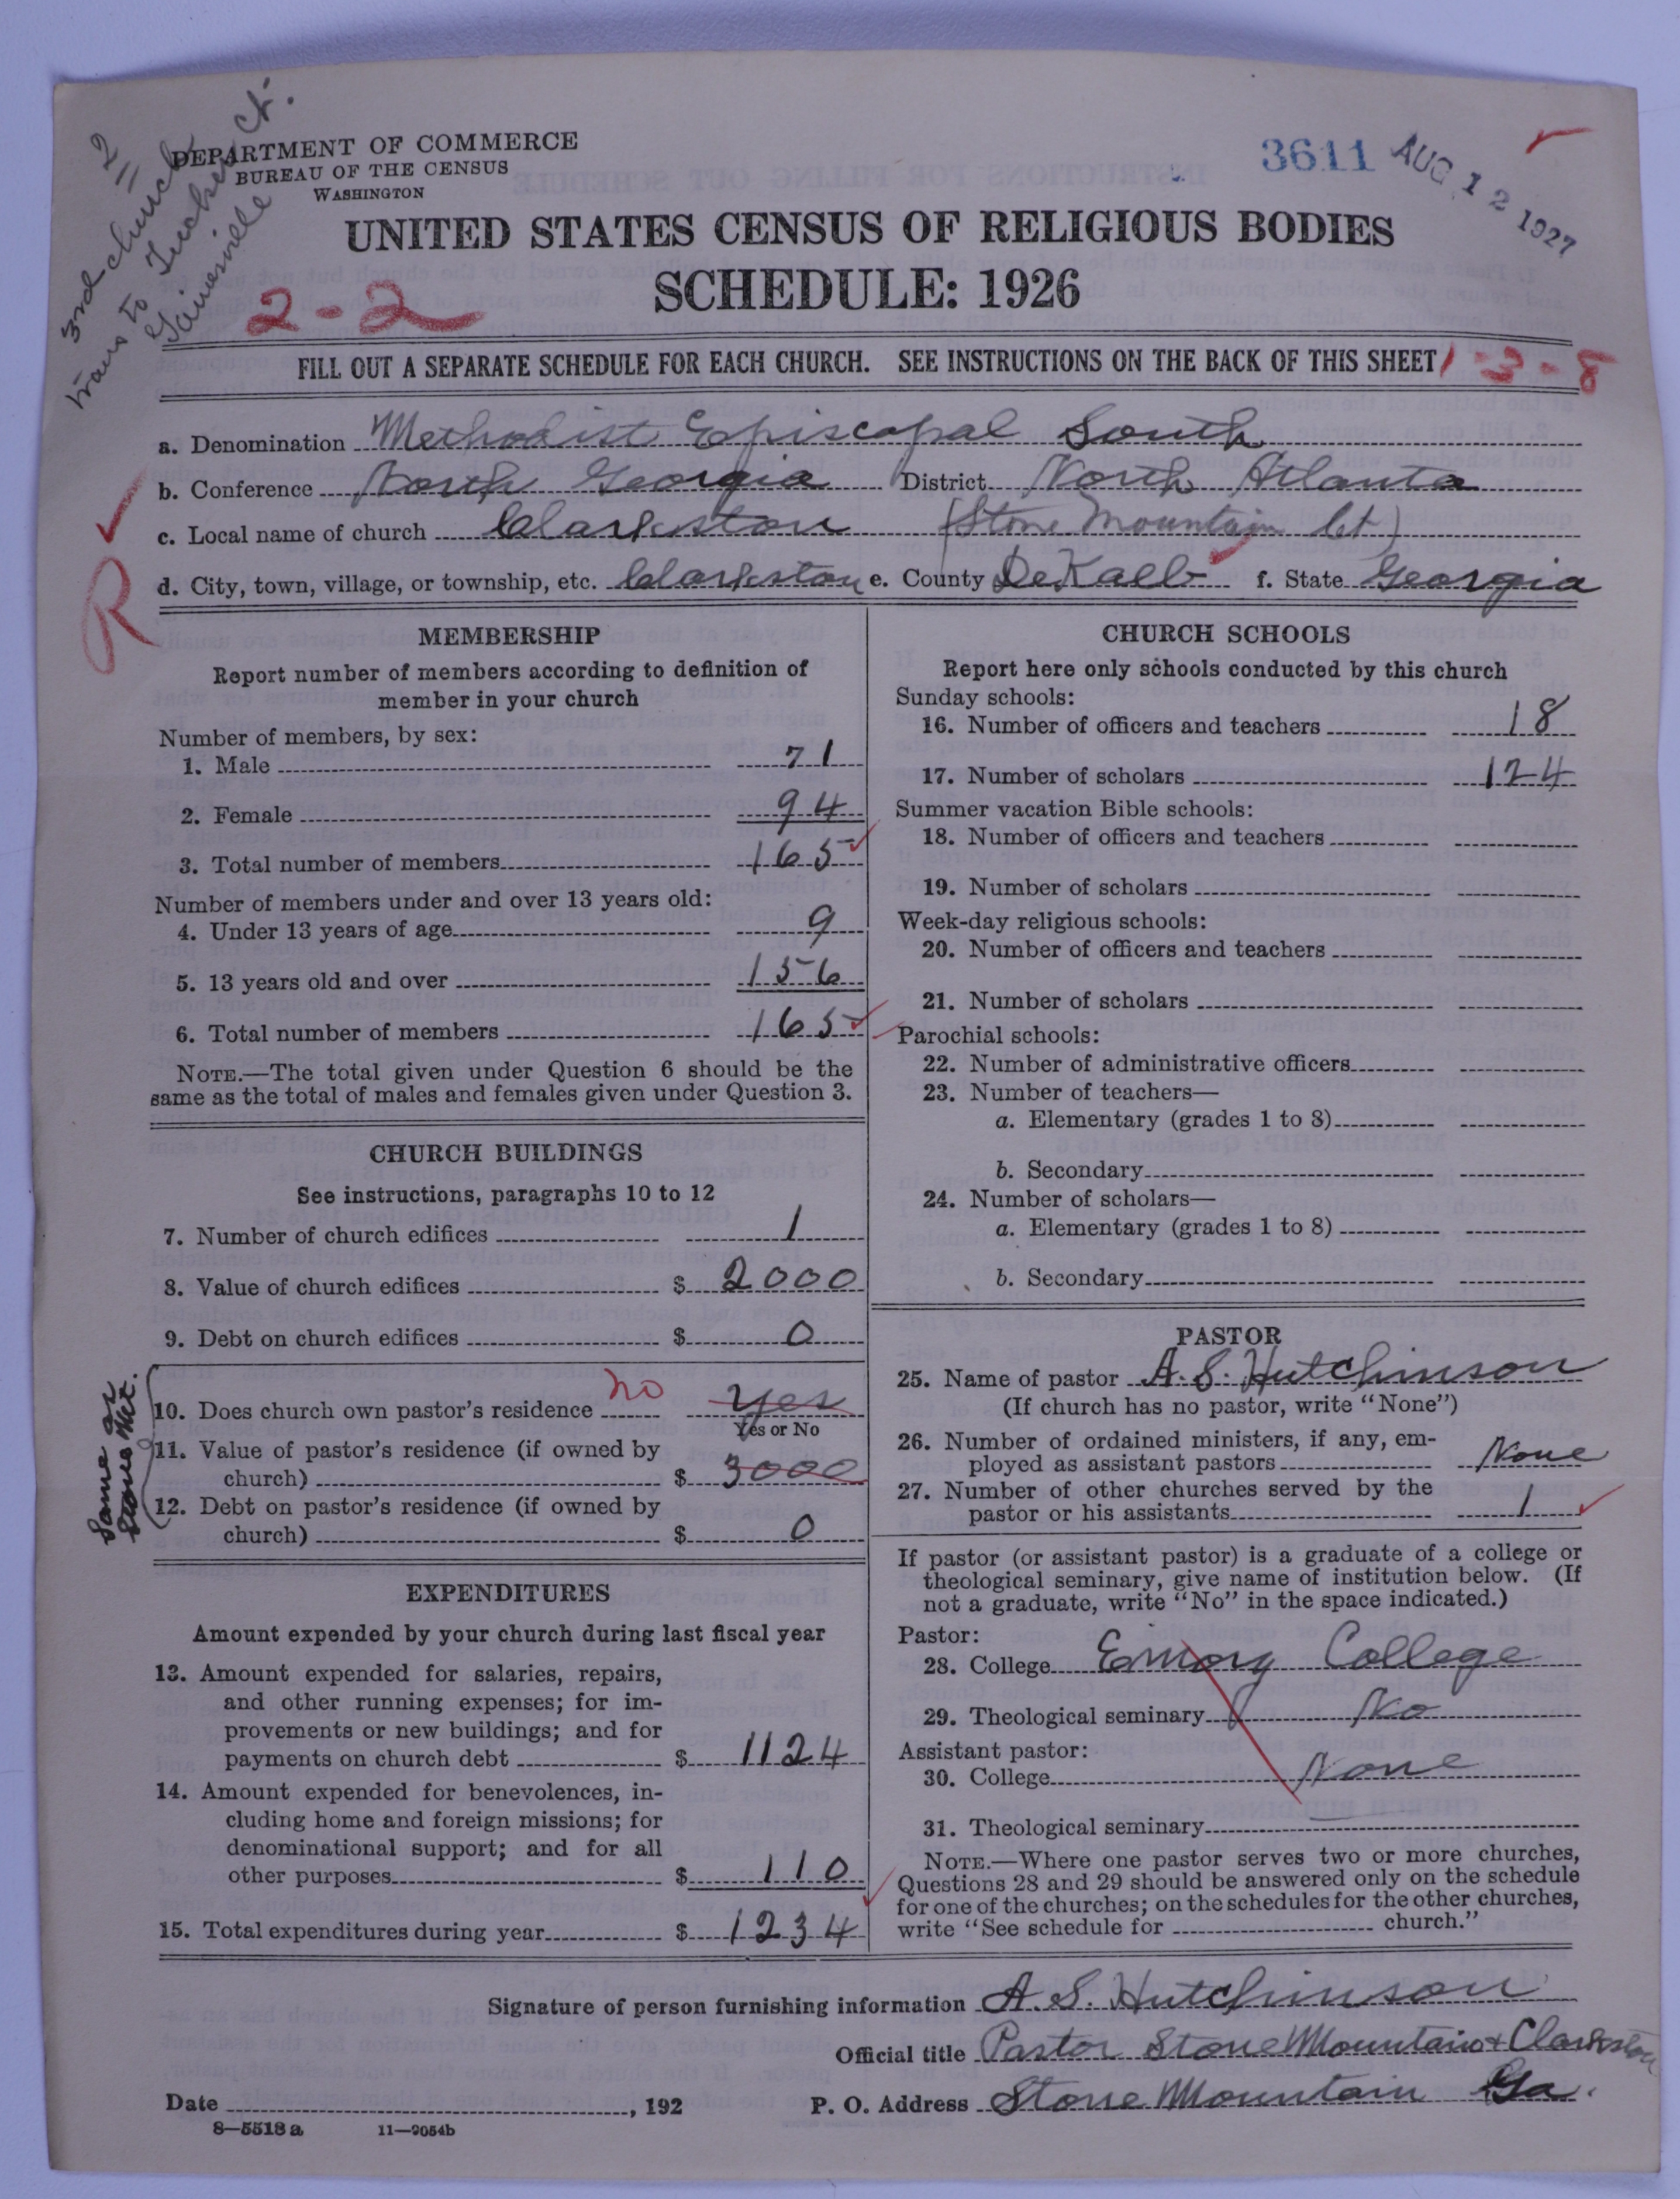 2
3rd church
trans to Tucker Ct.
Gainesville
DEPARTMENT OF COMMERCE
BUREAU OF THE CENSUS
WASHINGTON
3611 AUG 12 1927
UNITED STATES CENSUS OF RELIGIOUS BODIES
SCHEDULE: 1926
2-2
FILL OUT A SEPARATE SCHEDULE FOR EACH CHURCH. SEE INSTRUCTIONS ON THE BACK OF THIS SHEET
1-3-8
a. Denomination Methodist Episcopal South
b. Conference North Georgia District North Atlanta
c. Local name of church Clarkston (Stone Mountain Ct)
d. City, town, village, or township, etc. Clarkston e. County DeKalb f. State Georgia
R
MEMBERSHIP
Report number of members according to definition of
member in your church
Number of members, by sex:
1. Male 71
2. Female 94
3. Total number of members 165
Number of members under and over 13 years old:
4. Under 13 years of age 9
5. 13 years old and over 156
6. Total number of members 165
NOTE.—The total given under Question 6 should be the
same as the total of males and females given under Question 3.
CHURCH BUILDINGS
See instructions, paragraphs 10 to 12
7. Number of church edifices 1
8. Value of church edifices $ 2000
9. Debt on church edifices $ 0
Same as
Stone Mt.
10. Does church own pastor's residence no yes
Yes or No
11. Value of pastor's residence (if owned by
church) $ 3000
12. Debt on pastor's residence (if owned by
church) $ 0
EXPENDITURES
Amount expended by your church during last fiscal year
13. Amount expended for salaries, repairs,
and other running expenses; for im-
provements or new buildings; and for
payments on church debt $ 1124
14. Amount expended for benevolences, in-
cluding home and foreign missions; for
denominational support; and for all
other purposes $ 110
15. Total expenditures during year $ 1234
CHURCH SCHOOLS
Report here only schools conducted by this church
Sunday schools:
16. Number of officers and teachers 18
17. Number of scholars 124
Summer vacation Bible schools:
18. Number of officers and teachers
19. Number of scholars
Week-day religious schools:
20. Number of officers and teachers
21. Number of scholars
Parochial schools:
22. Number of administrative officers
23. Number of teachers—
a. Elementary (grades 1 to 8)
b. Secondary
24. Number of scholars—
a. Elementary (grades 1 to 8)
b. Secondary
PASTOR
25. Name of pastor A. S. Hutchinson
(If church has no pastor, write "None")
26. Number of ordained ministers, if any, em-
ployed as assistant pastors None
27. Number of other churches served by the
pastor or his assistants 1
If pastor (or assistant pastor) is a graduate of a college or
theological seminary, give name of institution below. (If
not a graduate, write "No" in the space indicated.)
Pastor:
28. College Emory College
29. Theological seminary No
Assistant pastor:
30. College None
31. Theological seminary
NOTE.—Where one pastor serves two or more churches,
Questions 28 and 29 should be answered only on the schedule
for one of the churches; on the schedules for the other churches,
write "See schedule for church."
Signature of person furnishing information A. S. Hutchinson
Official title Pastor Stone Mountain & Clarkston
Date , 192 P. O. Address Stone Mountain Ga.
8—5518a 11—9054b